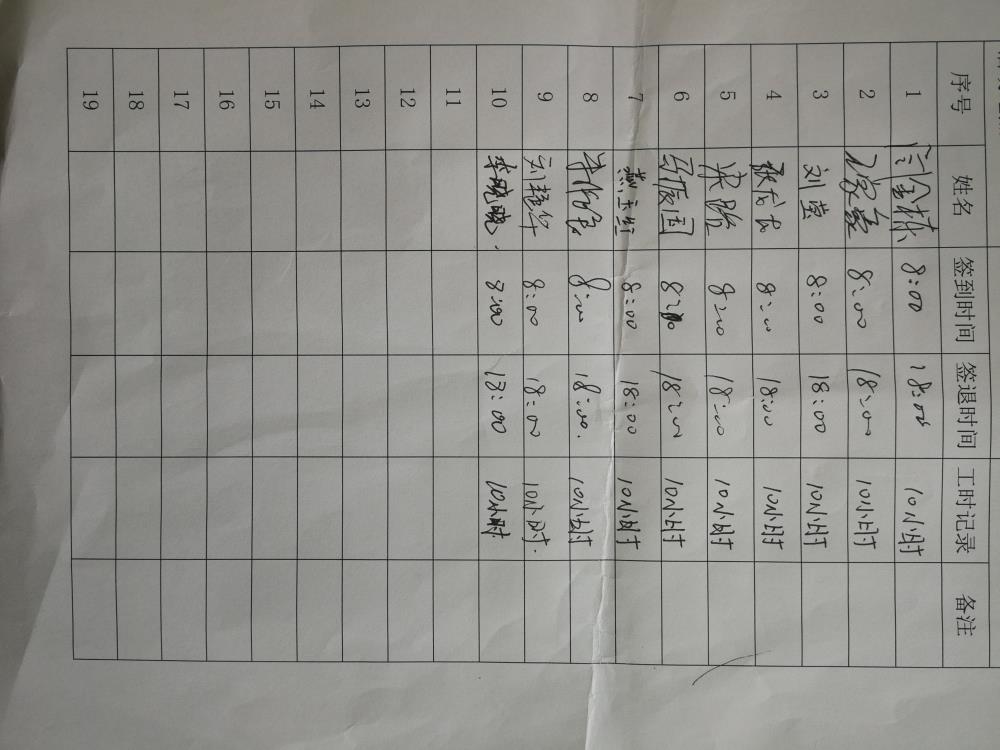 序号 姓名 签到时间 签退时间 工时记录 备注
1 8:00 18:00 10小时
2 8:00 18:00 10小时
3 刘莹 8:00 18:00 10小时
4 8:00 18:00 10小时
5 8:00 18:00 10小时
6 马振国 8:00 18:00 10小时
7 8:00 18:00 10小时
8 8:00 18:00. 10小时
9 刘艳华 8:00 18:00 10小时.
10 李晓晓 8:00 18:00 10小时
11
12
13
14
15
16
17
18
19